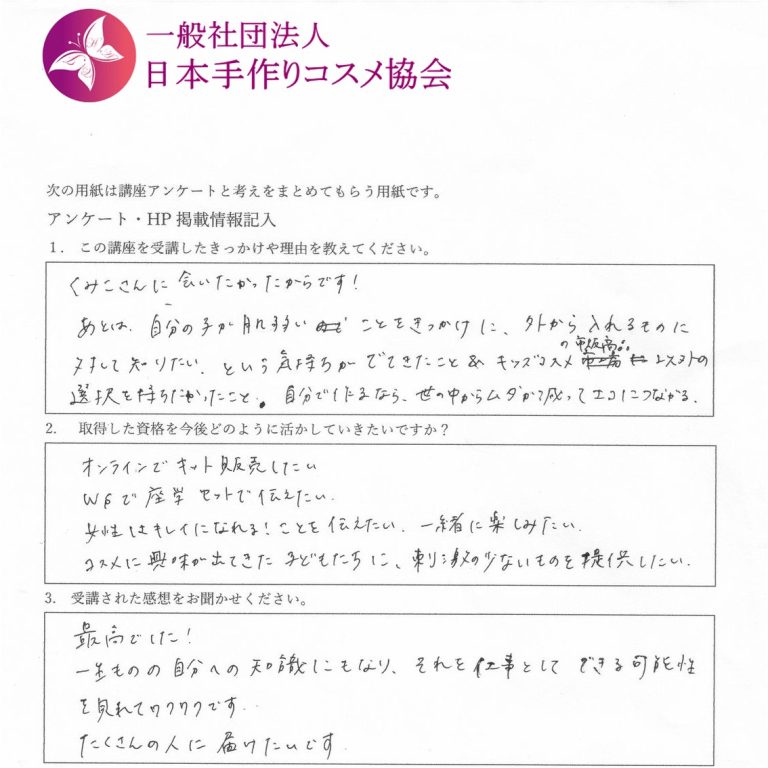 一般社団法人
日本手作りコスメ協会
次の用紙は講座アンケートと考えをまとめてもらう用紙です。
アンケート・HP 掲載情報記入
1. この講座を受講したきっかけや理由を教えてください。
くみこさんに 会いたかったからです!
あとは、自分の子が肌弱い ことをきっかけに、外から入れるものに
対して知りたい、という気持ちがでてきたこと & キッズコスメ の市販商品 以外の
選択を持ちたかったこと。自分で作るなら、世の中からムダが減ってエコにつながる。
2. 取得した資格を今後どのように活かしていきたいですか?
オンラインで キット販売したい
WSで 座学 セットで伝えたい.
女性はキレイになれる!ことを伝えたい. 一緒に楽しみたい.
コスメに興味が出てきた 子どもたちに、刺激の少ないものを提供したい.
3. 受講された感想をお聞かせください。
最高でした!
一生ものの自分への知識にもなり、それを仕事として できる可能性
を見れてワクワクです.
たくさんの人に 届けたいです.